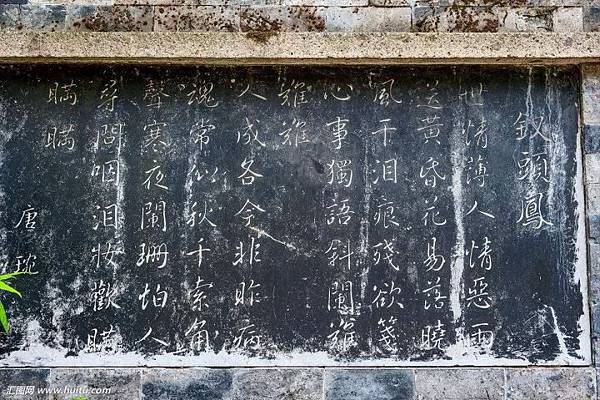 釵頭鳳
世情薄人情惡雨
送黃昏花易落曉
風干泪痕殘欲箋
心事獨語斜闌難
難難
人成各今非昨病
魂常似秋千索角
聲寒夜闌珊怕人
尋問咽泪妝歡瞞
瞞瞞
唐琬
汇图网 www.huitu.com